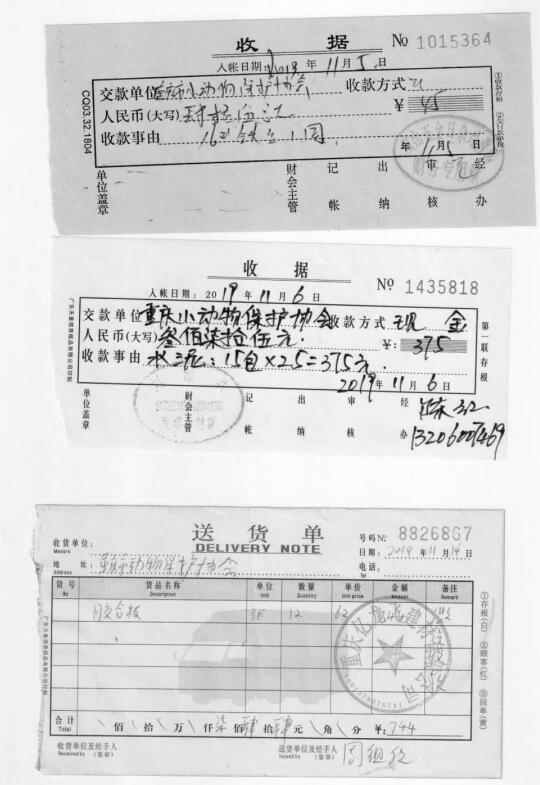 收 据
№ 1015364
入帐日期: 2019 年 11 月 5 日
交款单位 重庆市小动物保护协会 收款方式
人民币(大写) 肆拾伍元 ¥ 45
收款事由
年 11 月 5 日
①收款存根 ②交付款单位
CQ03.32.1804
单位盖章 财会主管 记帐 出纳 审核 经办
收 据
№ 1435818
入帐日期: 2019 年 11 月 6 日
交款单位 重庆小动物保护协会 收款方式 现 金
人民币(大写) 叁佰柒拾伍元. ¥: 375
收款事由 水泥: 15包×25=375元.
2019 年 11 月 6 日
第一联存根
单位盖章 财会主管 记帐 出纳 审核 经办
送 货 单
DELIVERY NOTE
号码 №: 8826867
收货单位:
Messrs
日期: 2019 年 11 月 14 日
Date
地 址: 重庆动物保护协会
Address
电话:
Tel
货号 货品名称 单位 数量 单价 金额 备注
No Description Unit Quantity Unit price Amount Remark
胶合板 张 12 62
①存根(白) ②顾客(红) ③回单(黄)
合计 \ 佰 \ 拾 \ 万 \ 仟 柒 佰 肆 拾 肆 元 \ 角 \ 分 ¥: 744
Total
收货单位及经手人 送货单位及经手人
Received by (签章) Sent by (签章)